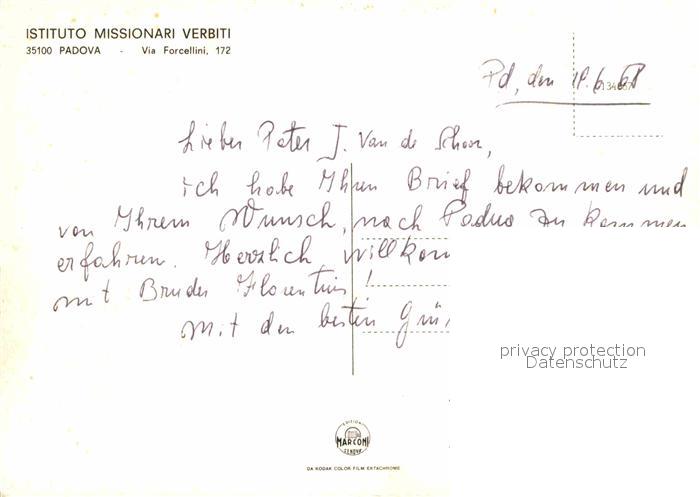 ISTITUTO MISSIONARI VERBITI
35100 PADOVA - Via Forcellini, 172
Pd, den 18.6.68
Lieber Pater J. Van de Schoor,
ich habe Ihren Brief bekommen und
von Ihrem Wunsch, nach Padua zu kommen
erfahren. Herzlich willkom
mit Bruder Florentius!
Mit den besten Grü
privacy protection
Datenschutz
EDITION
MARCONI
GENOVA
DA KODAK COLOR FILM EKTACHROME